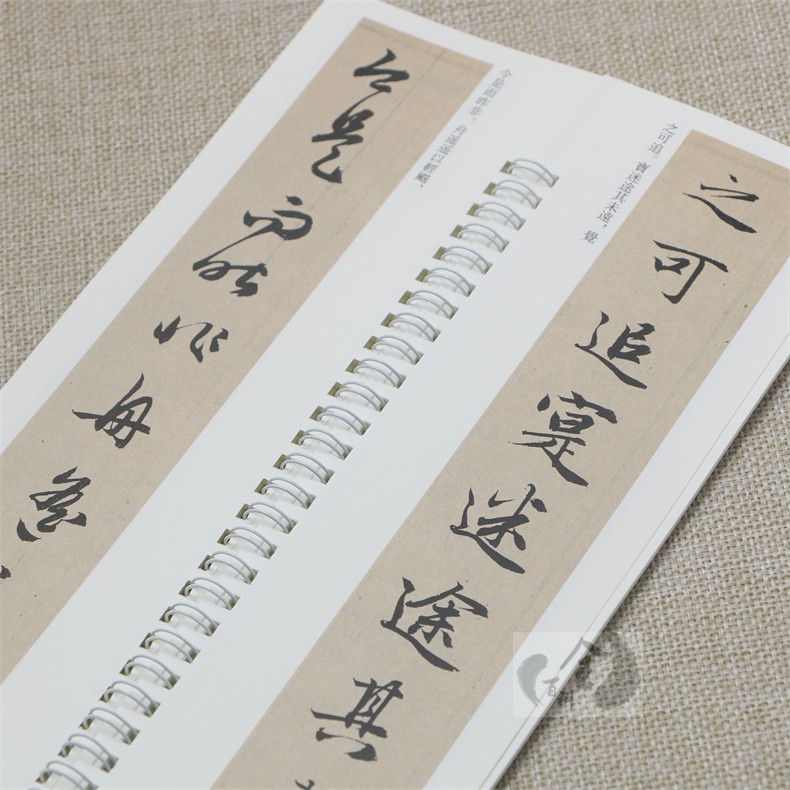 之可追寔迷途其
之可追。實迷途其未遠，覺
今是而昨非舟遥
今是而昨非。舟遥遥以輕颺，